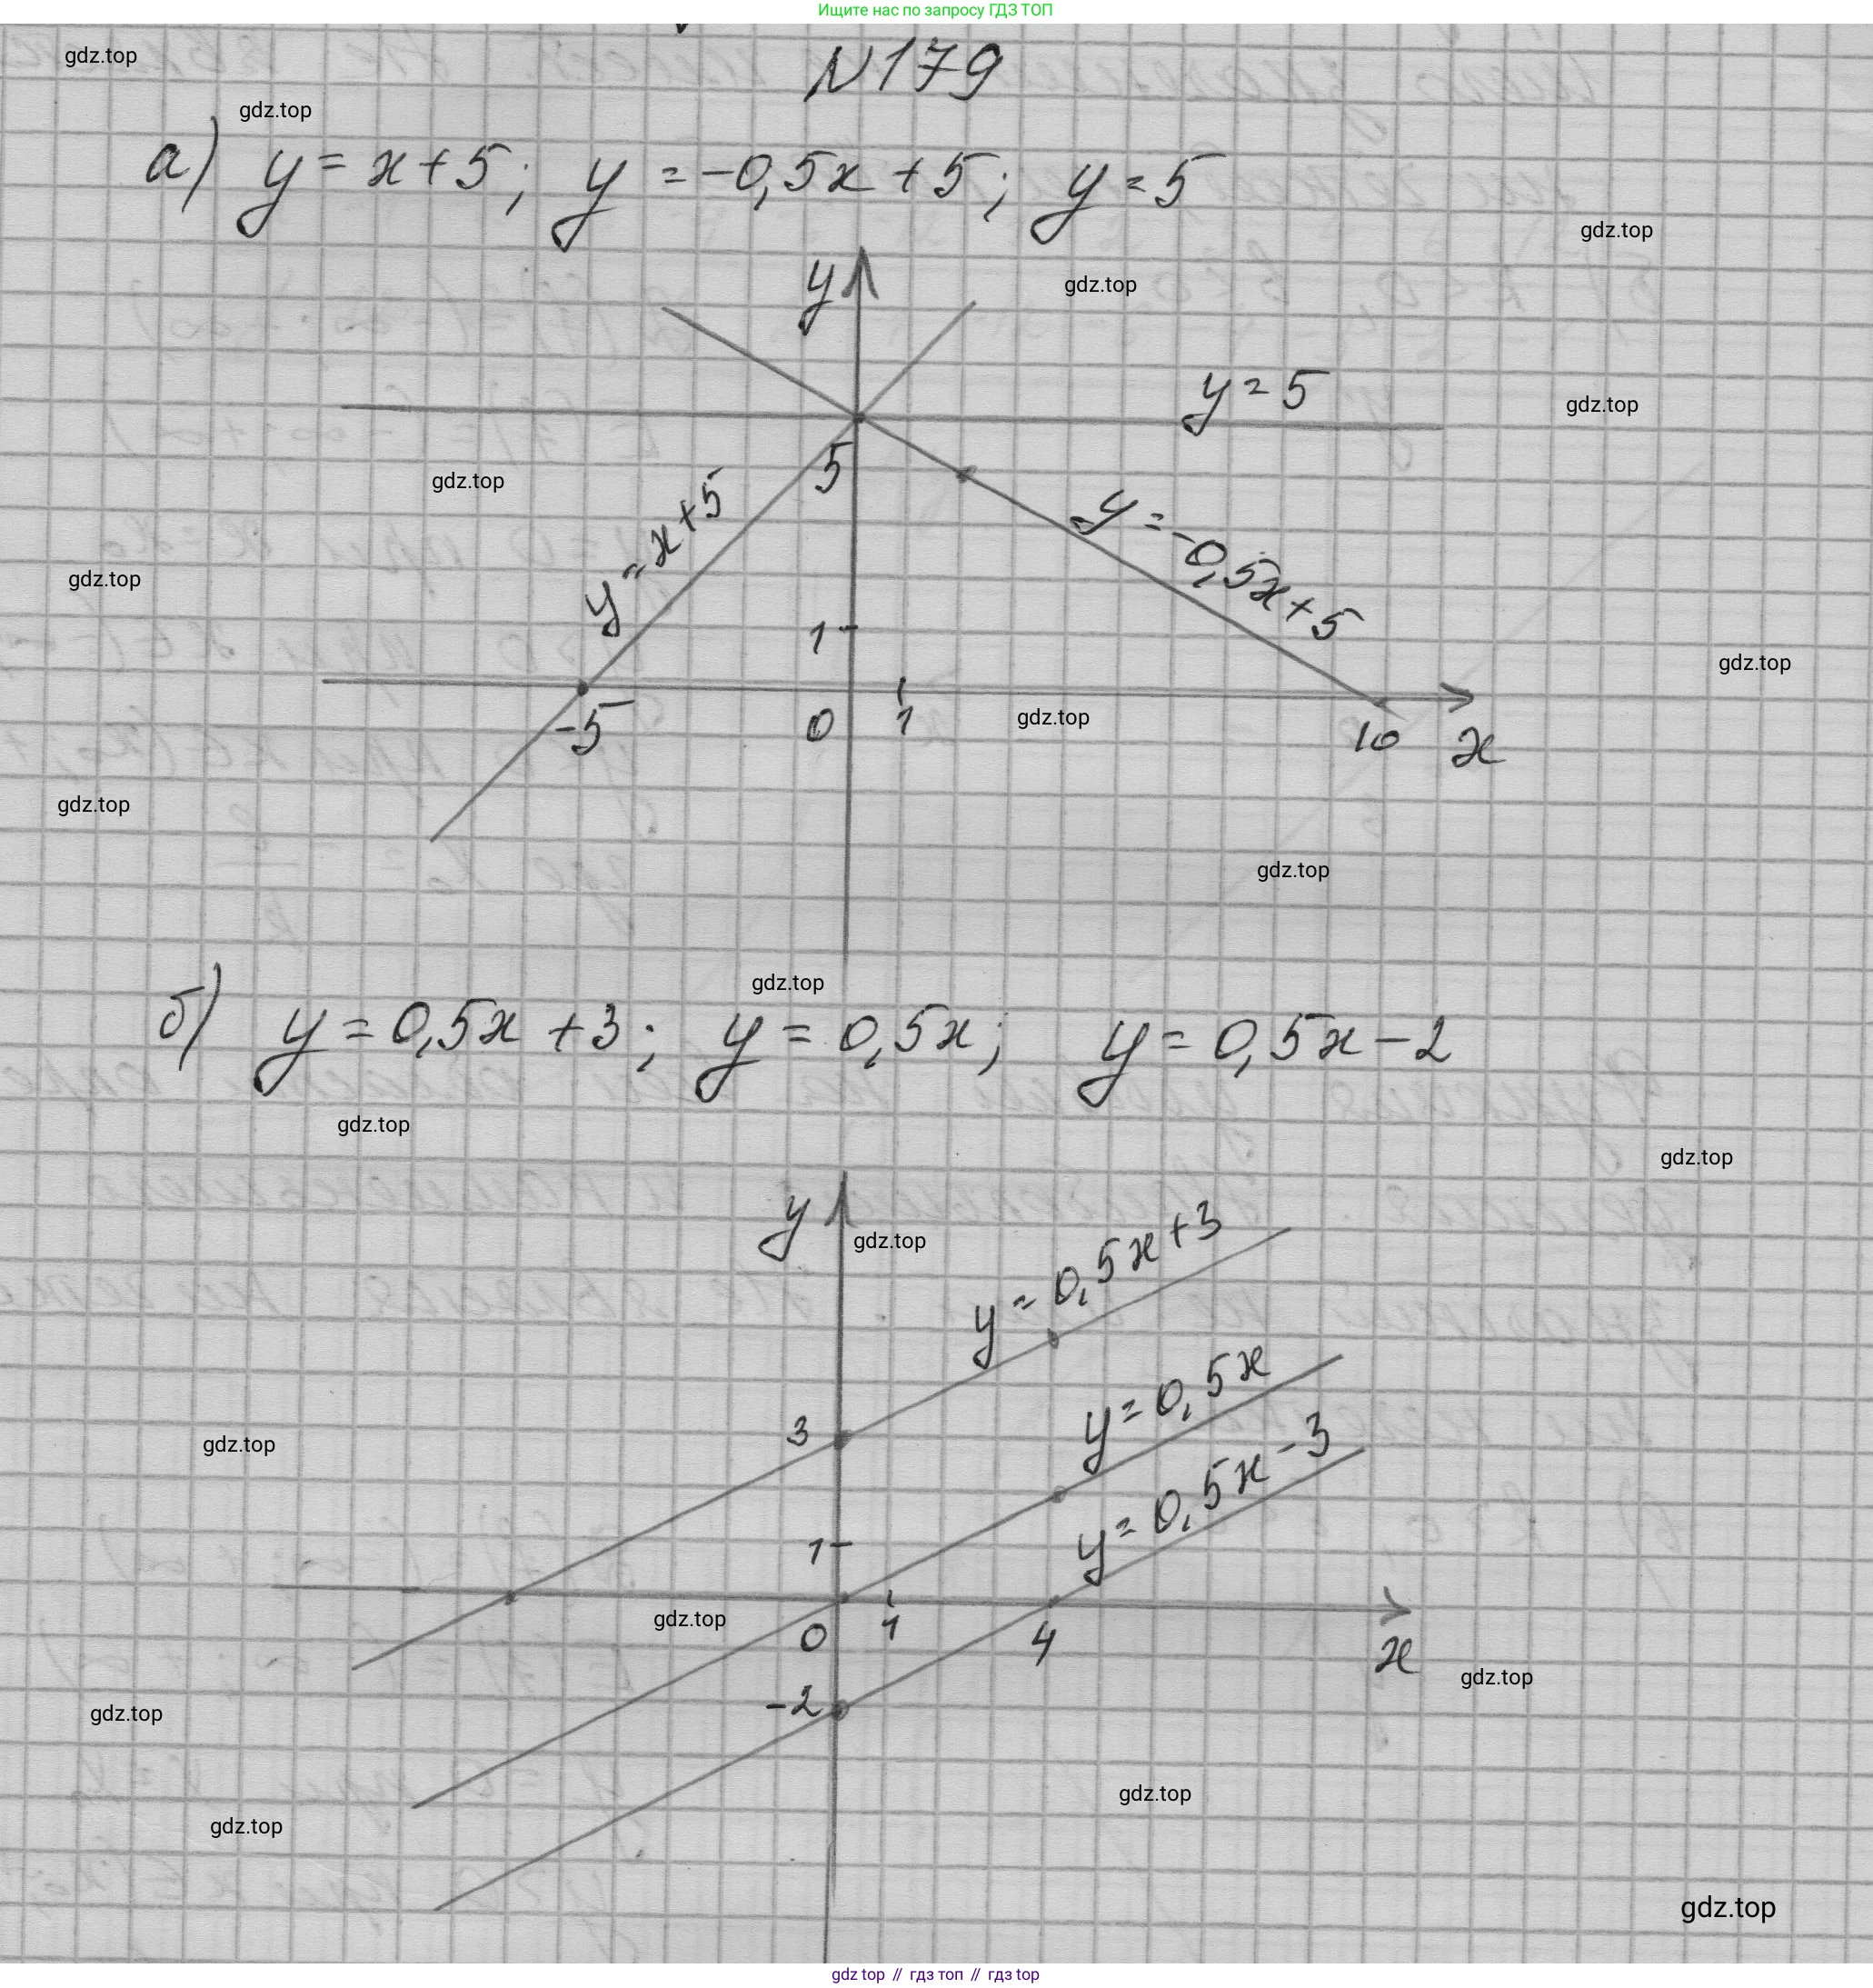 Ищите нас по запросу ГДЗ ТОП
N179
gdz.top
gdz.top
а) y = x + 5; y = -0,5x + 5; y = 5
gdz.top
y
gdz.top
y = 5
gdz.top
5
gdz.top
y = x + 5
y = -0,5x + 5
gdz.top
1
gdz.top
-5
0
1
gdz.top
10
x
gdz.top
gdz.top
gdz.top
б) y = 0,5x + 3; y = 0,5x; y = 0,5x - 2
gdz.top
gdz.top
y
gdz.top
y = 0,5x + 3
3
y = 0,5x
gdz.top
y = 0,5x - 3
1
gdz.top
0
1
4
x
gdz.top
-2
gdz.top
gdz.top
gdz.top
gdz.top
gdz top // гдз топ // гдз top